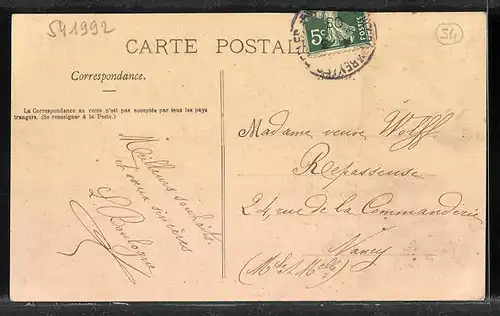 541992
54
CARTE POSTALE
5c
POSTES
Correspondance.
La Correspondance au recto n'est pas acceptée par tous les pays
trangers. (Se renseigner à la Poste.)
Meilleurs souhaits
et voeux sincères
L. Boulogne
Madame veuve Wolff
Repasseuse
24, rue de la Commanderie
Nancy
(Mthe & Mlle)